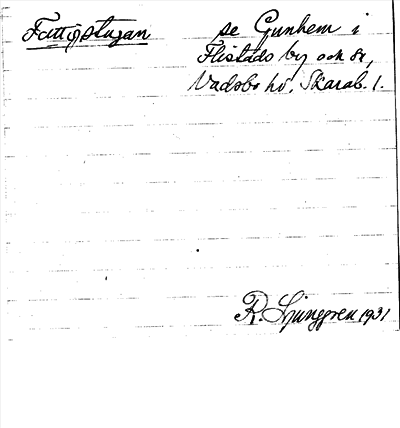 Fattigstugan se Gunhem i
Flistads by och sn,
Vadsbo hd, Skarab. l.
R. Ljunggren 1931